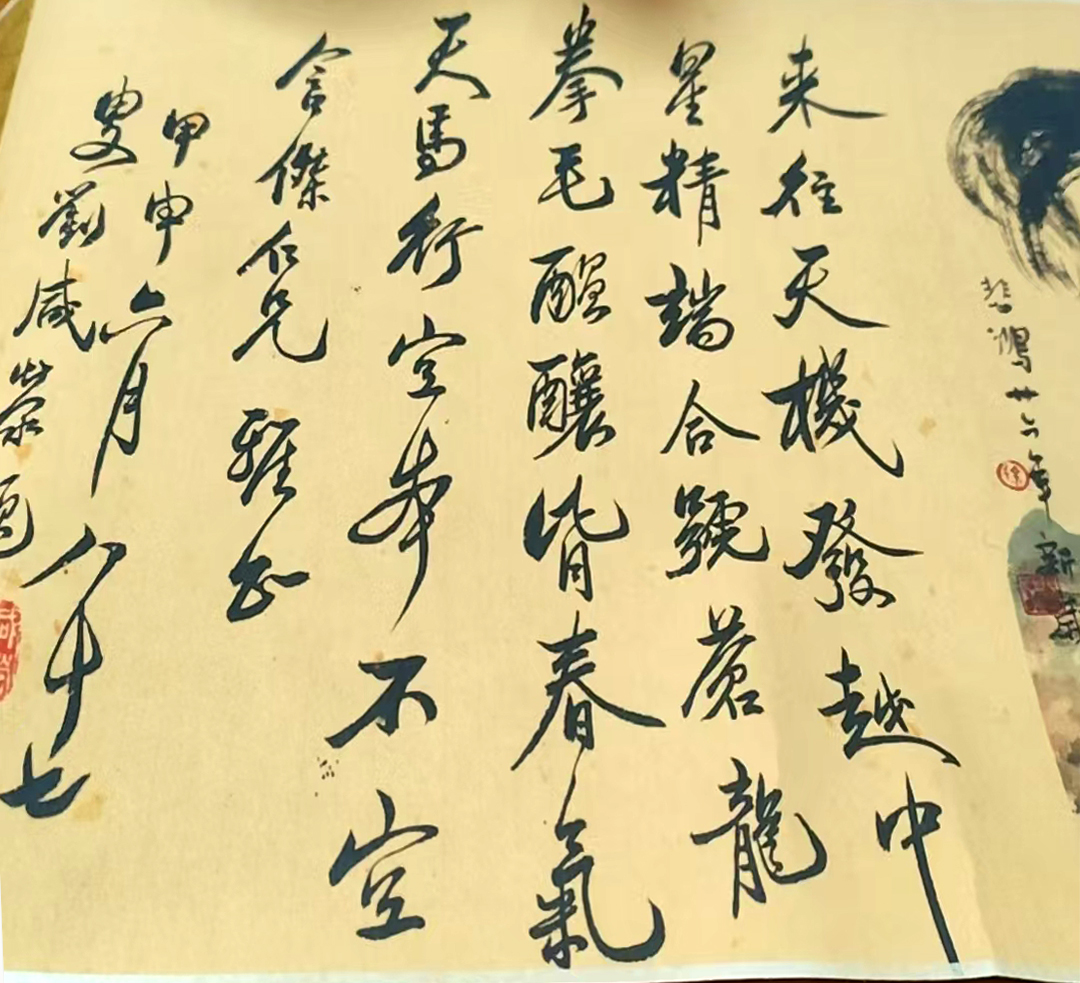 悲鴻廿六年
徐
新
来往天機發越中
星精端合號蒼龍
拳毛醞釀皆春氣
天馬行空本不空
言傑仁兄雅正
甲申六月八十七
叟劉咸滎題